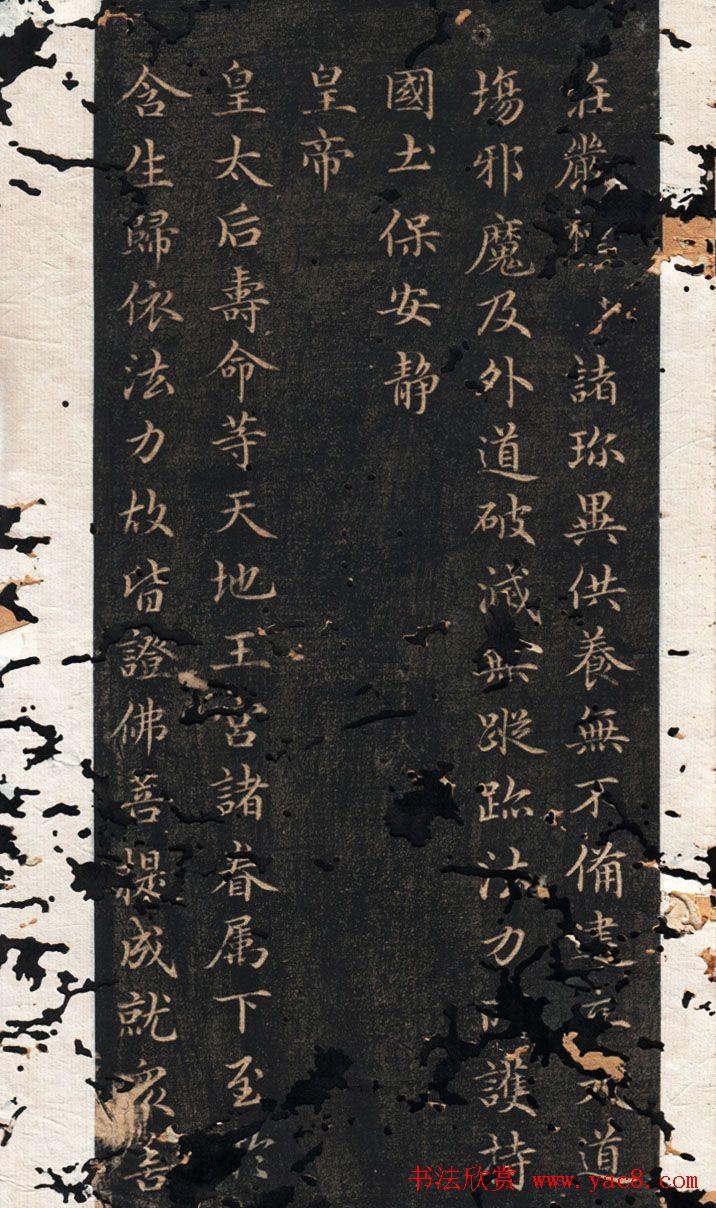 莊嚴 諸珎異供養無不備建 道
塲邪魔及外道破滅無蹤跡法力 護持
國土保安静
皇帝
皇太后壽命等天地王宫諸眷属下至
含生歸依法力故皆證佛菩提成就衆善
书法欣赏 www.yac8.com